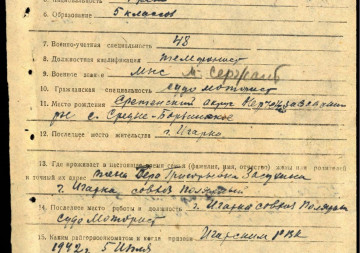 6. Образование 5 классов
7. Военно-учетная специальность 48
8. Должностная квалификация телефонист
9. Военное звание мнс м. сержант
10. Гражданская специальность судо моторист
11. Место рождения Сретенский округ
рн с. Средне-
12. Последнее место жительства г. Игарка
13. Где проживает в настоящее время семья (фамилия, имя, отчество) жены или родителей
и точный их адрес жена Вера Григорьевна Засухина
г. Игарка совхоз Полярный
14. Последнее место работы и должность г. Игарка совхоз Полярный
судо Моторист
15. Каким райгорвоенкоматом и когда призван Игарским РВК
1942 г. 5 Июля